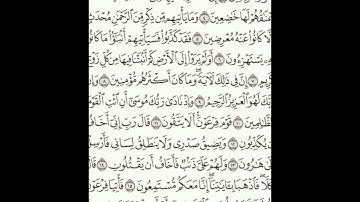 عْنَٰقُهُمْ لَهَا خَٰضِعِينَ ٤ وَمَا يَأْتِيهِم مِّن ذِكْرٍ مِّنَ ٱلرَّحْمَٰنِ مُحْدَثٍ
لَّا كَانُوا۟ عَنْهُ مُعْرِضِينَ ٥ فَقَدْ كَذَّبُوا۟ فَسَيَأْتِيهِمْ أَنۢبَٰٓؤُا۟ مَا
بِهِۦ يَسْتَهْزِءُونَ ٦ أَوَلَمْ يَرَوْا۟ إِلَى ٱلْأَرْضِ كَمْ أَنۢبَتْنَا فِيهَا مِن كُلِّ زَوْ
٧ إِنَّ فِى ذَٰلِكَ لَءَايَةً وَمَا كَانَ أَكْثَرُهُم مُّؤْمِنِينَ ٨ وَإِنَّ
بَّكَ لَهُوَ ٱلْعَزِيزُ ٱلرَّحِيمُ ٩ وَإِذْ نَادَىٰ رَبُّكَ مُوسَىٰٓ أَنِ ٱئْتِ ٱلْقَوْمَ
لظَّٰلِمِينَ ١٠ قَوْمَ فِرْعَوْنَ أَلَا يَتَّقُونَ ١١ قَالَ رَبِّ إِنِّىٓ أَخَافُ
ن يُكَذِّبُونِ ١٢ وَيَضِيقُ صَدْرِى وَلَا يَنطَلِقُ لِسَانِى فَأَرْسِ
لَىٰ هَٰرُونَ ١٣ وَلَهُمْ عَلَىَّ ذَنۢبٌ فَأَخَافُ أَن يَقْتُلُونِ ١٤ قَالَ
كَلَّا فَٱذْهَبَا بِـَٔايَٰتِنَآ إِنَّا مَعَكُم مُّسْتَمِعُونَ ١٥ فَأْتِيَا فِرْعَوْ